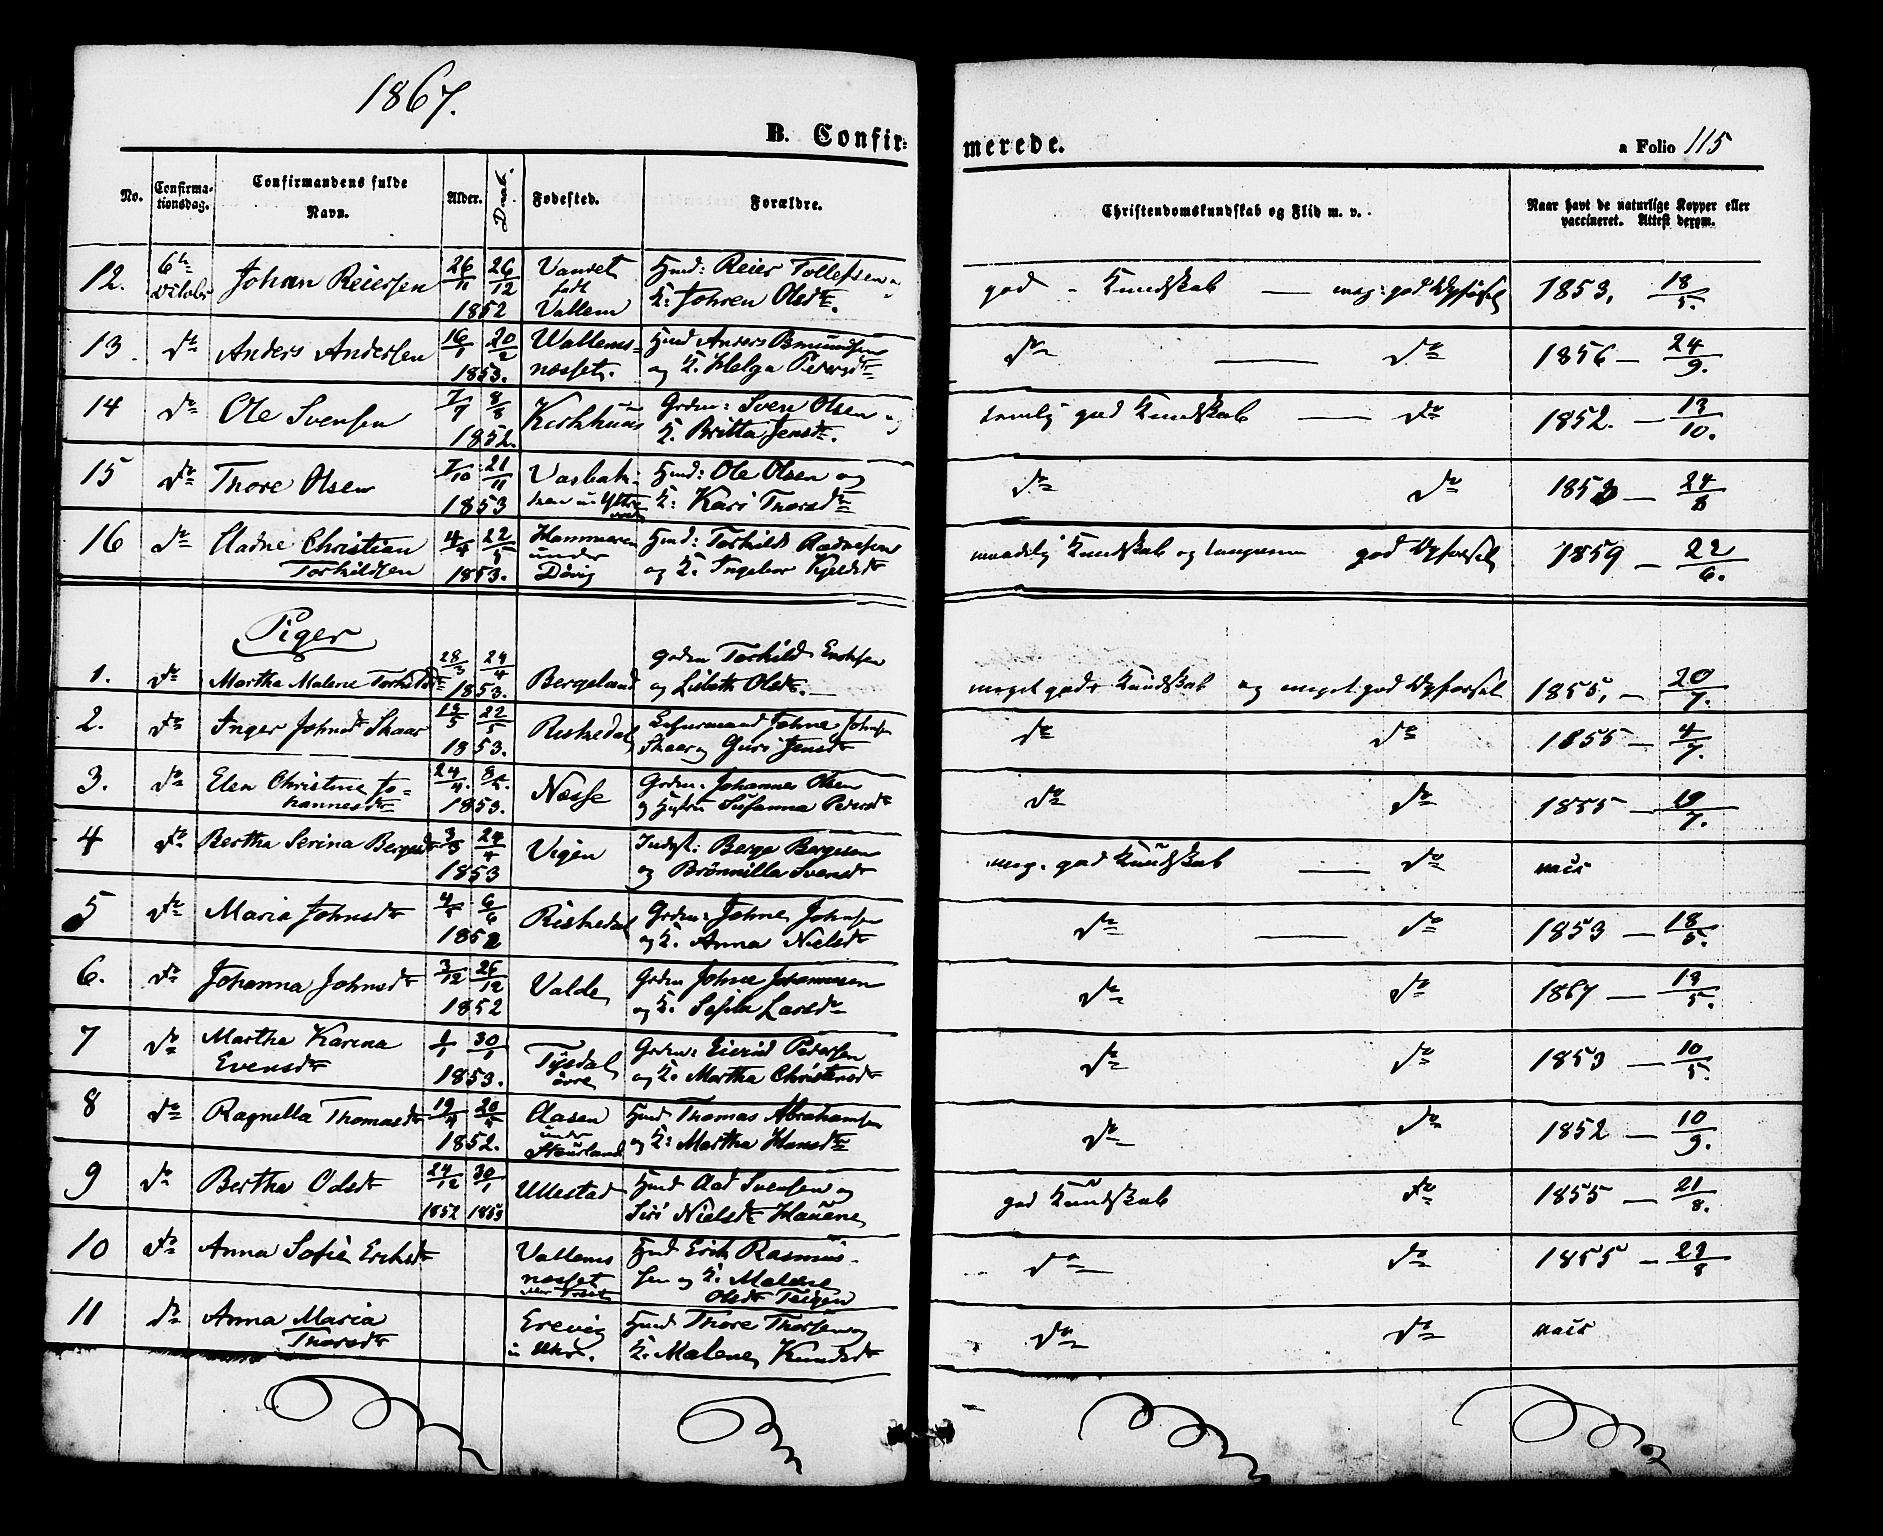 1867.
B. Confir=
merede.
a Folio 115
No. Confirma=tionsdag. Confirmandens fulde Navn. Alder. Daab. Fødested. Forældre. Christendomskundskab og Flid m. v. Naar havt de naturlige Kopper eller vaccineret. Attest derom.
12. Johan Reiersen 26/11 26/12 1852 født Vallem Huusmd: Reier Tollefsen og K. Johren Olsdtr. god Kundskab — meg: god Opførsel 1853, 18/5.
13. do Anders Andersen 16/1 20/2 1853. Wallems=nesset. Hmd Anders Amundsen og K. Helga Pedersdtr do — do 1856 — 24/9.
14 do Ole Svensen 7/7 8/8 1852. Kirkhuus Grdm: Sven Olsen og K. Britta Jensdtr. temlig god Kundskab — do 1852. — 13/10.
15 do Thore Olsen 7/10 21/11 1853 Hmd: Ole Olsen og K: Kari Thorsdtr do do 1853 — 24/8
16 do Aadne Christian Torkildsen 4/4 22/5 1853. Hammeren under Døvig Hmd: Torkild Aadnesen og K. Ingebor Kjeldsdtr maadelig Kundskab og god Opførsel 1859 — 22/6.
Piger
1. do Martha Malene Torkildsdtr 28/3 24/4 1853. Bergeland Grdm Torkild Eriksen og Lisbeth Olsdtr. meget god Kundskab og meget god Opførsel 1855, — 20/7.
2. do Inger Johnsdtr Skaar 22/5 1853. Riskedal Johne Johnsen Skaar og Guri Jensdtr do do 1855 — 4/7.
3. do Elen Christine Jo=hannesdtr 24/4. 1853. Nesse Grdm: Johannes Olsen og Hustru Susanna Pedersdtr do do 1855 — 19/7.
4 do Bertha Serina Bergesdtr 3/3 24/4 1853 Vigen Indst: Berge Bergesen og Brønnilla Svensdtr meg. god Kundskab — do vacc
5 do Maria Johnsdtr 6/6 1852 Riskedal Grdm: Johne Johnsen og K. Anna Nielsdtr do — do 1853 — 18/5.
6. do Johanna Johnsdtr 3/12 26/12 1852 Valde Grdm Johne Johannesen og K. Sofia Larsdtr do do 1867 — 13/5.
7 do Martha Karina Evensdtr 1/1 30/1 1853. Tysdal øvre Grdm: Eivind Pedersen og K. Martha Christensdtr do do 1853 — 10/5.
8 do Ragnilla Thomasdtr 1852. Aasen under Staurland Hmd Thomas Abrahamsen og K: Martha Hansdtr do do 1852 — 10/9.
9 do Bertha Odsdtr 24/12 1852 30/1 1853 Ullestad Hmd Aad Svensen og Siri Nielsdtr Hauene god Kundskab do 1855 — 21/8.
10 do Anna Sofia Eriksdtr Vallems nesset Hmd Erik Rasmus=sen og K. Malene Olsdtr Teigen do do 1855 — 23/8
11 do Anna Maria Thorsdtr Erevig Hmd Thore Thorsen og K. Malene Knudsdtr do do vacc